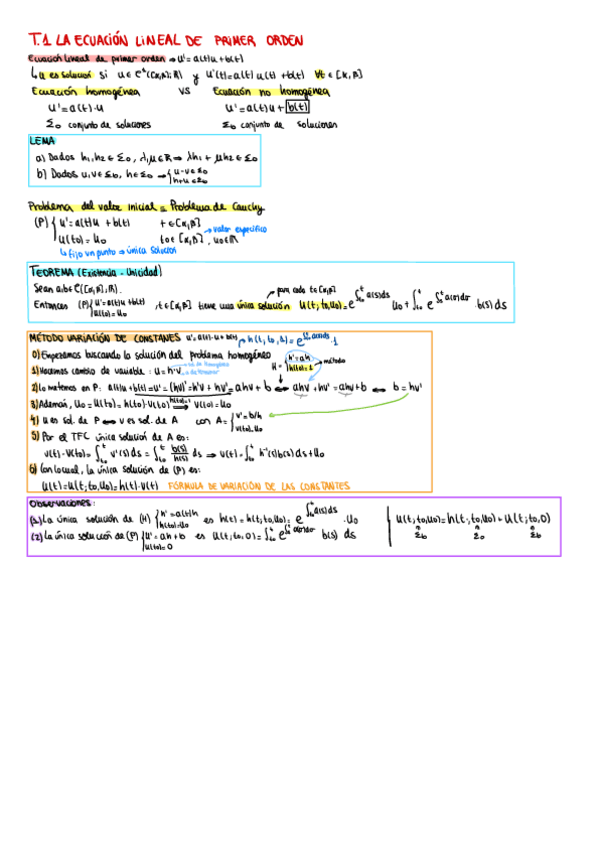 T.1 LA ECUACIÓN LINEAL DE PRIMER ORDEN
Ecuación lineal de primer orden → u' = a(t)u + b(t)
↳ u es solución si u ∈ C¹([α,β];ℝ) y u'(t) = a(t)u(t) + b(t) ∀t ∈ [α,β]
Ecuación homogénea VS Ecuación no homogénea
u' = a(t)·u u' = a(t)u + b(t)
Σ₀ conjunto de soluciones Σb conjunto de soluciones
LEMA
a) Dados h₁,h₂ ∈ Σ₀, λ,μ ∈ ℝ ⇒ λh₁ + μh₂ ∈ Σ₀
b) Dados u,v ∈ Σb, h ∈ Σ₀ ⇒ { u-v ∈ Σ₀
h+u ∈ Σb
Problema del valor inicial ≡ Problema de Cauchy
(P) { u' = a(t)u + b(t) t ∈ [α,β]
u(t₀) = u₀ t₀ ∈ [α,β], u₀ ∈ ℝ → valor específico
↳ fijo un punto ⇒ única solución
TEOREMA (Existencia - Unicidad)
Sean a,b ∈ C([α,β],ℝ). para cada t ∈ [α,β]
Entonces (P) { u' = a(t)u + b(t) , t ∈ [α,β] tiene una única solución u(t;t₀,u₀) = e^{∫_{t₀}^{t} a(s)ds} u₀ + ∫_{t₀}^{t} e^{∫_{s}^{t} a(σ)dσ} · b(s) ds
u(t₀) = u₀
MÉTODO VARIACIÓN DE CONSTANES u' = a(t)·u + b(t) → h(t,t₀,1) = e^{∫_{t₀}^{t} a(s)ds} · 1
0) Empezamos buscando la solución del problema homogéneo H = { h' = ah
h(t₀) = 1 → método
1) Hacemos cambio de variable: u = h·v
2) Lo metemos en P: a(t)u + b(t) = u' = (hv)' = h'v + hv' = ahv + b ⟺ ahv + hv' = ahv + b ⟺ b = hv'
3) Además, u₀ = u(t₀) = h(t₀)·v(t₀) ⟹ v(t₀) = u₀
h(t₀)=1
4) u es sol. de P ⟺ v es sol. de A con A = { v' = b/h
v(t₀) = u₀
5) Por el TFC única solución de A es:
v(t) - v(t₀) = ∫_{t₀}^{t} v'(s) ds = ∫_{t₀}^{t} b(s)/h(s) ds ⇒ v(t) = ∫_{t₀}^{t} h⁻¹(s) b(s) ds + u₀
6) Con lo cual, la única solución de (P) es:
u(t) = u(t;t₀,u₀) = h(t)·v(t) FÓRMULA DE VARIACIÓN DE LAS CONSTANTES
Observaciones:
(1) La única solución de (H) { h' = a(t)h es h(t) = h(t;t₀,u₀) = e^{∫_{t₀}^{t} a(s)ds} · u₀
h(t₀) = u₀
(2) La única solución de (P) { u' = ah + b es u(t;t₀,0) = ∫_{t₀}^{t} e^{∫_{s}^{t} a(σ)dσ} b(s) ds
u(t₀) = 0
u(t;t₀,u₀) = h(t;t₀,u₀) + u(t;t₀,0)
Σb Σ₀ Σb